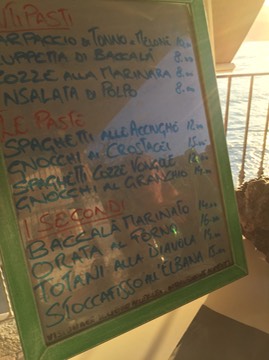 NTIPASTI
ARPACCIO DI TONNO E MELONE
ZUPPETTA DI BACCALÀ 8.00
COZZE ALLA MARINARA 8.00
INSALATA DI POLPO 8.00
LE PASTE
SPAGHETTI ALLE ACCIUGHE 12.00
GNOCCHI AI CROSTACEI 15.00
SPAGHETTI COZZE VONGOLE
GNOCCHI AL GRANCHIO
I SECONDI
BACCALÀ MARINATO 14.00
ORATA AL FORNO
TOTANI ALLA DIAVOLA 15.00
STOCCAFISSO ALL'ELBANA 15.00